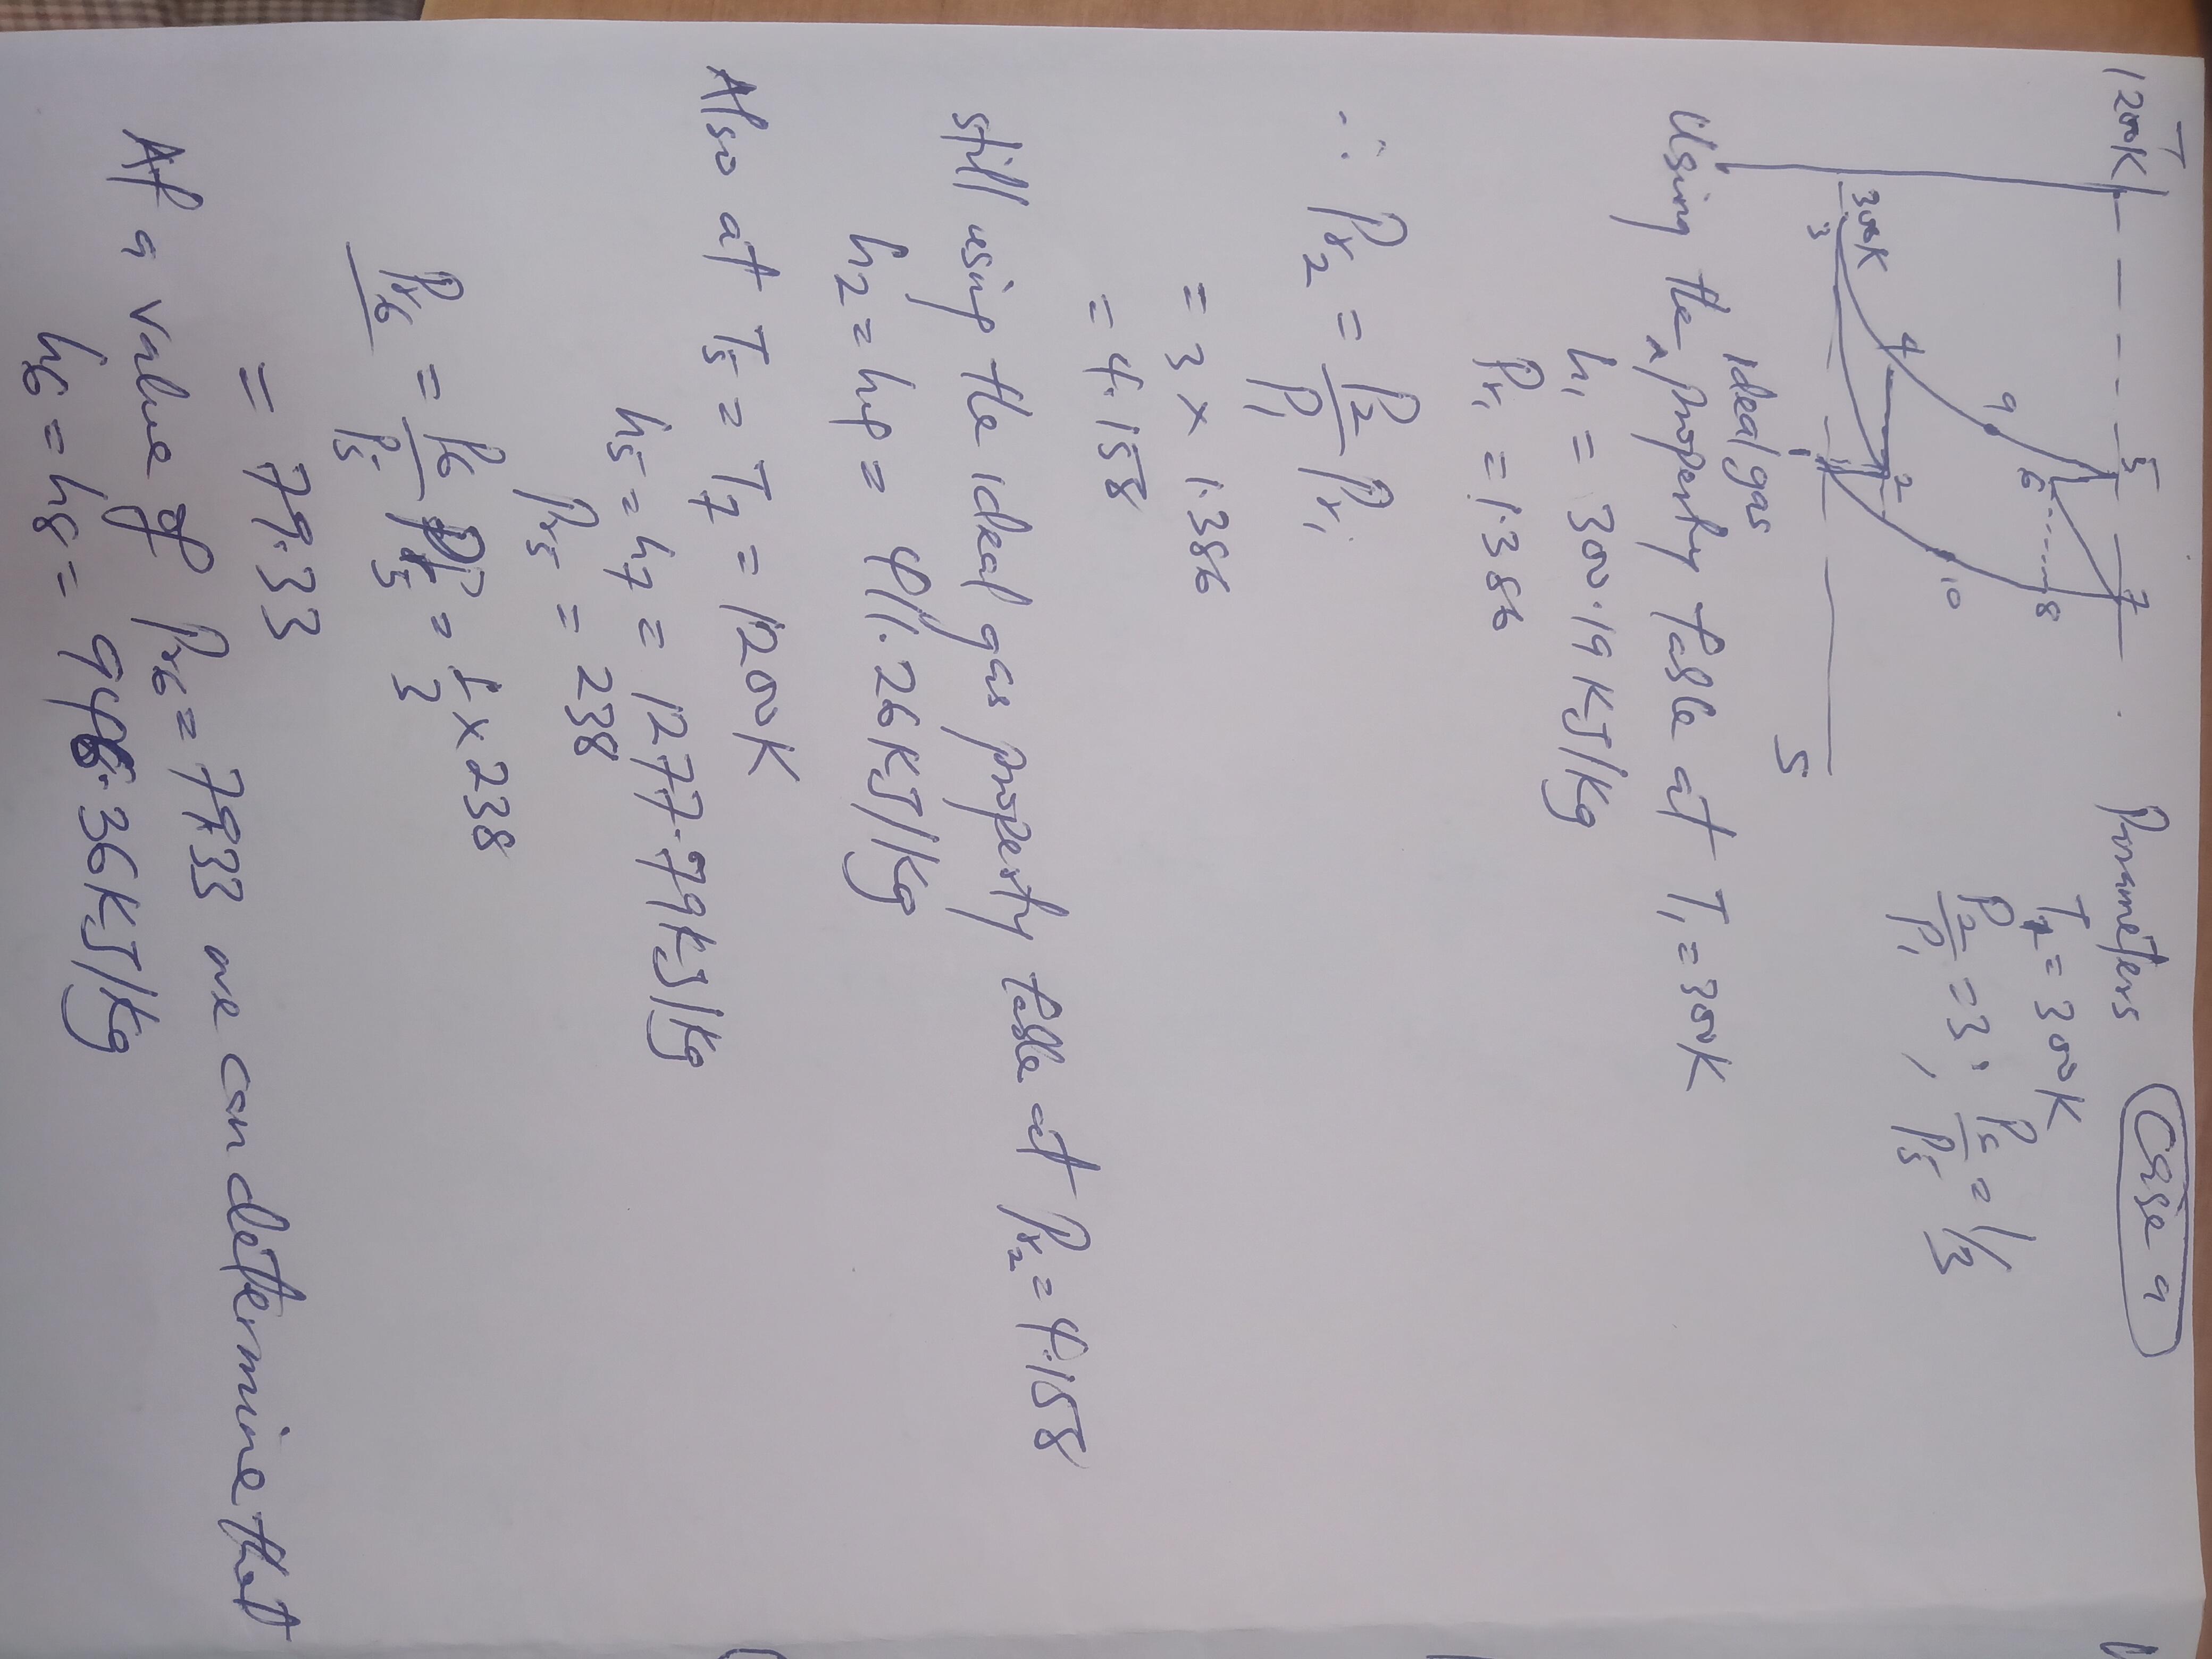 Case a
T
1200K
5
7
6
8
9
10
4
2
300K
3
1
S
Parameters
T1 = 300K
P2/P1 = 3 ; P6/P5 = 1/3
Using the ideal gas property table at T1 = 300K
h1 = 300.19 KJ/Kg
Pr1 = 1.386
∴ Pr2 = P2/P1 Pr1
= 3 × 1.386
= 4.158
still using the ideal gas property table at Pr2 = 4.158
h2 = h4 = 411.26 KJ/Kg
Also at T5 = T7 = 1200K
h5 = h7 = 1277.79 KJ/Kg
Pr5 = 238
Pr6 = P6/P5 Pr5 = 1/3 × 238
= 79.33
At a value of Pr6 = 79.33 we can dettermine that
h6 = h8 = 946.36 KJ/Kg